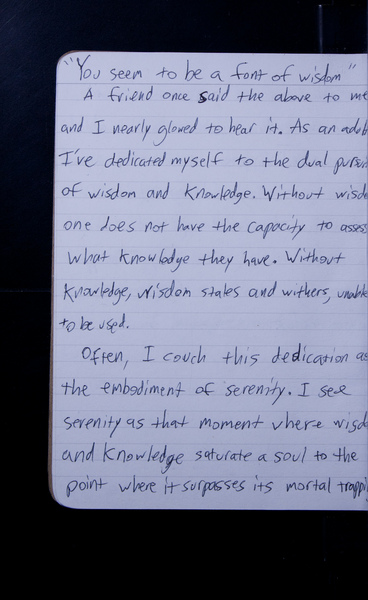 "You seem to be a font of wisdom"
A friend once said the above to me
and I nearly glowed to hear it. As an adul
I've dedicated myself to the dual pursui
of wisdom and knowledge. Without wisdo
one does not have the capacity to assess
what knowledge they have. Without
knowledge, wisdom stales and withers, unable
to be used.
Often, I couch this dedication as
the embodiment of serenity. I see
serenity as that moment where wisdo
and knowledge saturate a soul to the
point where it surpasses its mortal trappi